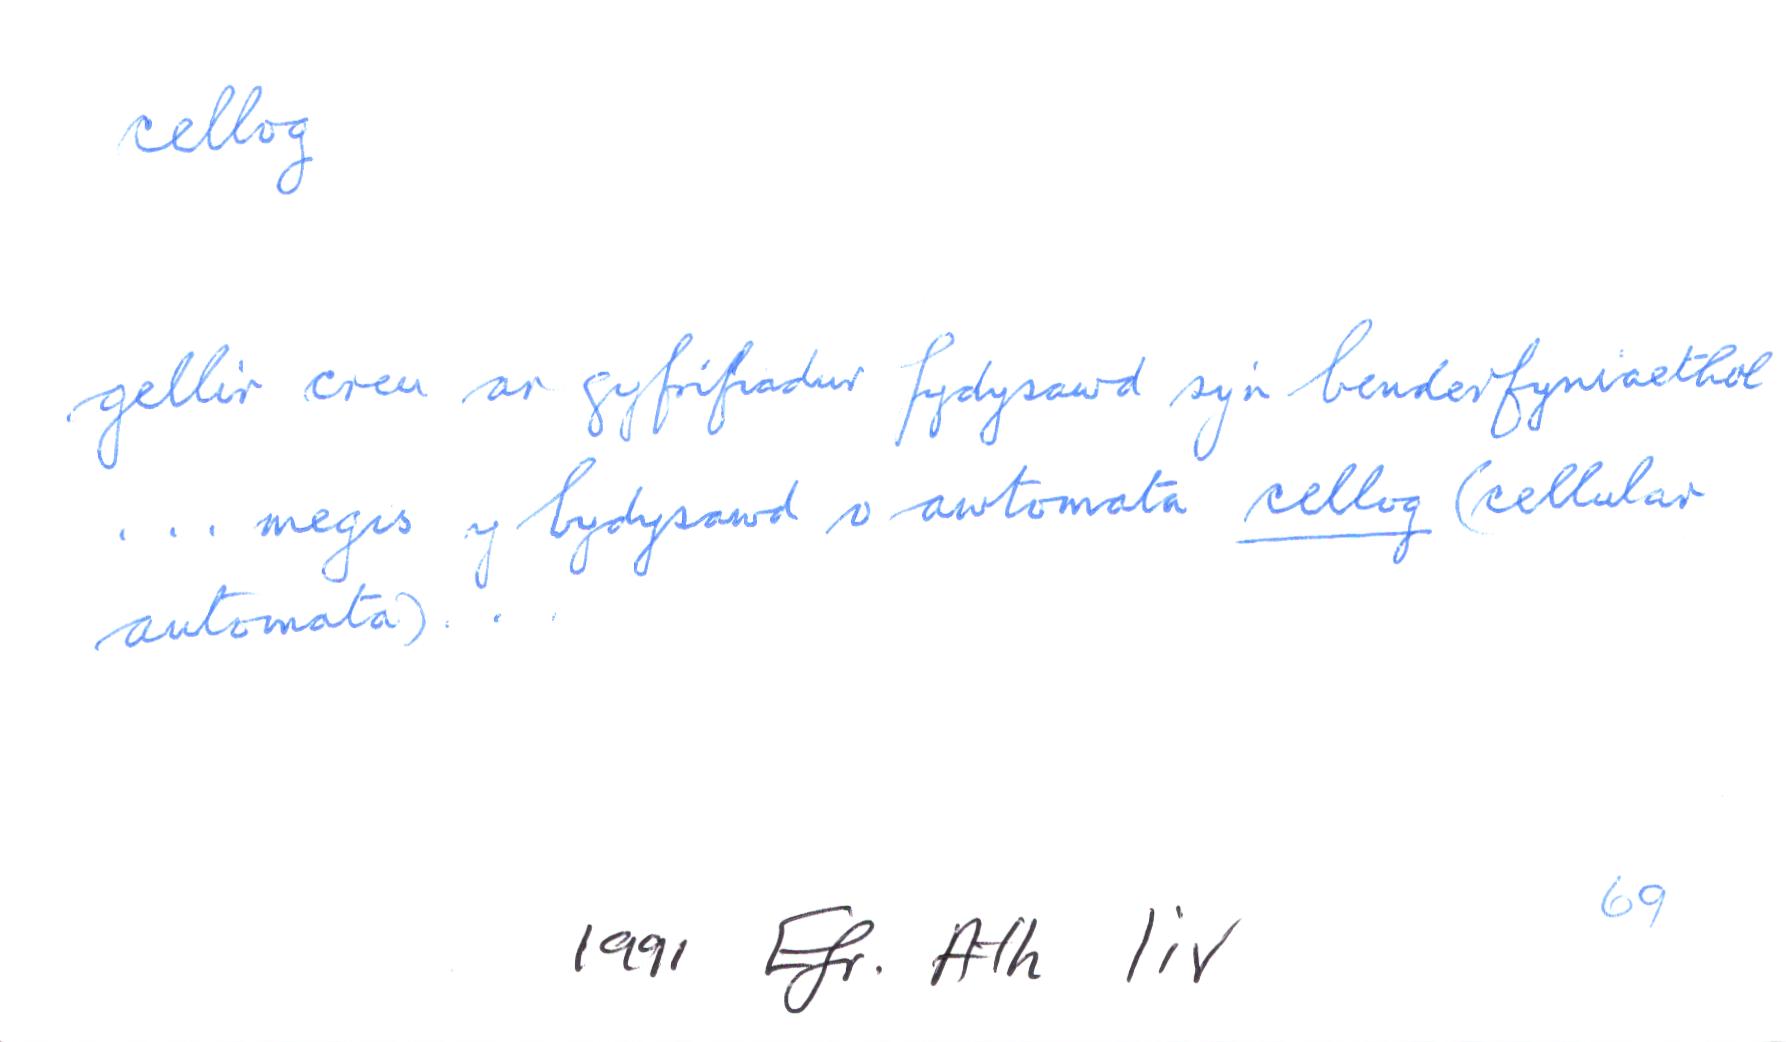 cellog
gellir creu ar gyfrifiadur fydysawd sy'n benderfyniaethol
... megis y bydysawd o awtomata cellog (cellular
automata)...
69
1991 Efr. Ath liv